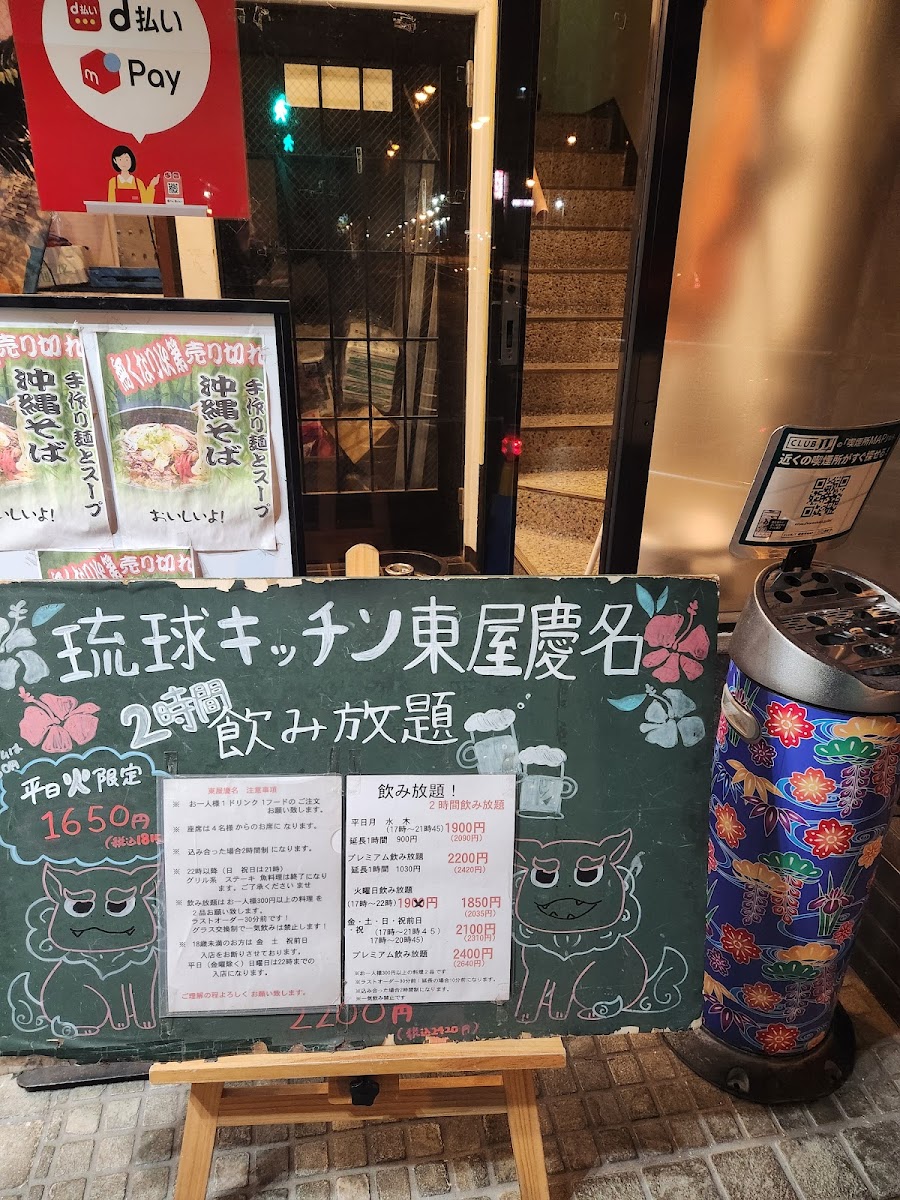 d払い
Pay
売り切れ
沖縄そば
手作り麺とスープ
おいしいよ!
無くなり次第売り切れ
沖縄そば
手作り麺とスープ
おいしいよ!
無くなり次第売り切れ
CLUB JTの「喫煙所MAP」なら
近くの喫煙所がすぐ探せる!
琉球キッチン東屋慶名
2時間飲み放題
平日火限定
1650円
2200円
(税込2420円)
東屋慶名 注意事項
※ お一人様1ドリンク1フードのご注文
お願い致します。
※ 座席は4名様からのお席になります。
※ 込み合った場合2時間制になります。
※ 22時以降(日 祝日は21時)
グリル系 ステーキ 魚料理は終了になり
ます。ご了承くださいませ
※ 飲み放題はお一人様300円以上の料理を
2品お願い致します。
ラストオーダー30分前です!
グラス交換制で一気飲みは禁止します!
※ 18歳未満のお方は 金 土 祝前日
入店をお断りさせております。
平日(金曜除く)日曜日は22時までの
入店になります。
ご理解の程よろしくお願い致します。
飲み放題!
2時間飲み放題
平日月 水 木
(17時〜21時45) 1900円
(2090円)
延長1時間 900円
プレミアム飲み放題 2200円
延長1時間 1030円 (2420円)
火曜日飲み放題
(17時〜22時) 1900円 1850円
(2035円)
金・土・日・祝前日
・祝 (17時〜21時45) 2100円
17時〜20時45) (2310円)
プレミアム飲み放題 2400円
(2640円)
※お一人様300円以上の料理2品です
※ラストオーダー30分前!延長の場合10分前になります。
※込み合った場合2時間制になります。
※一気飲み禁止です